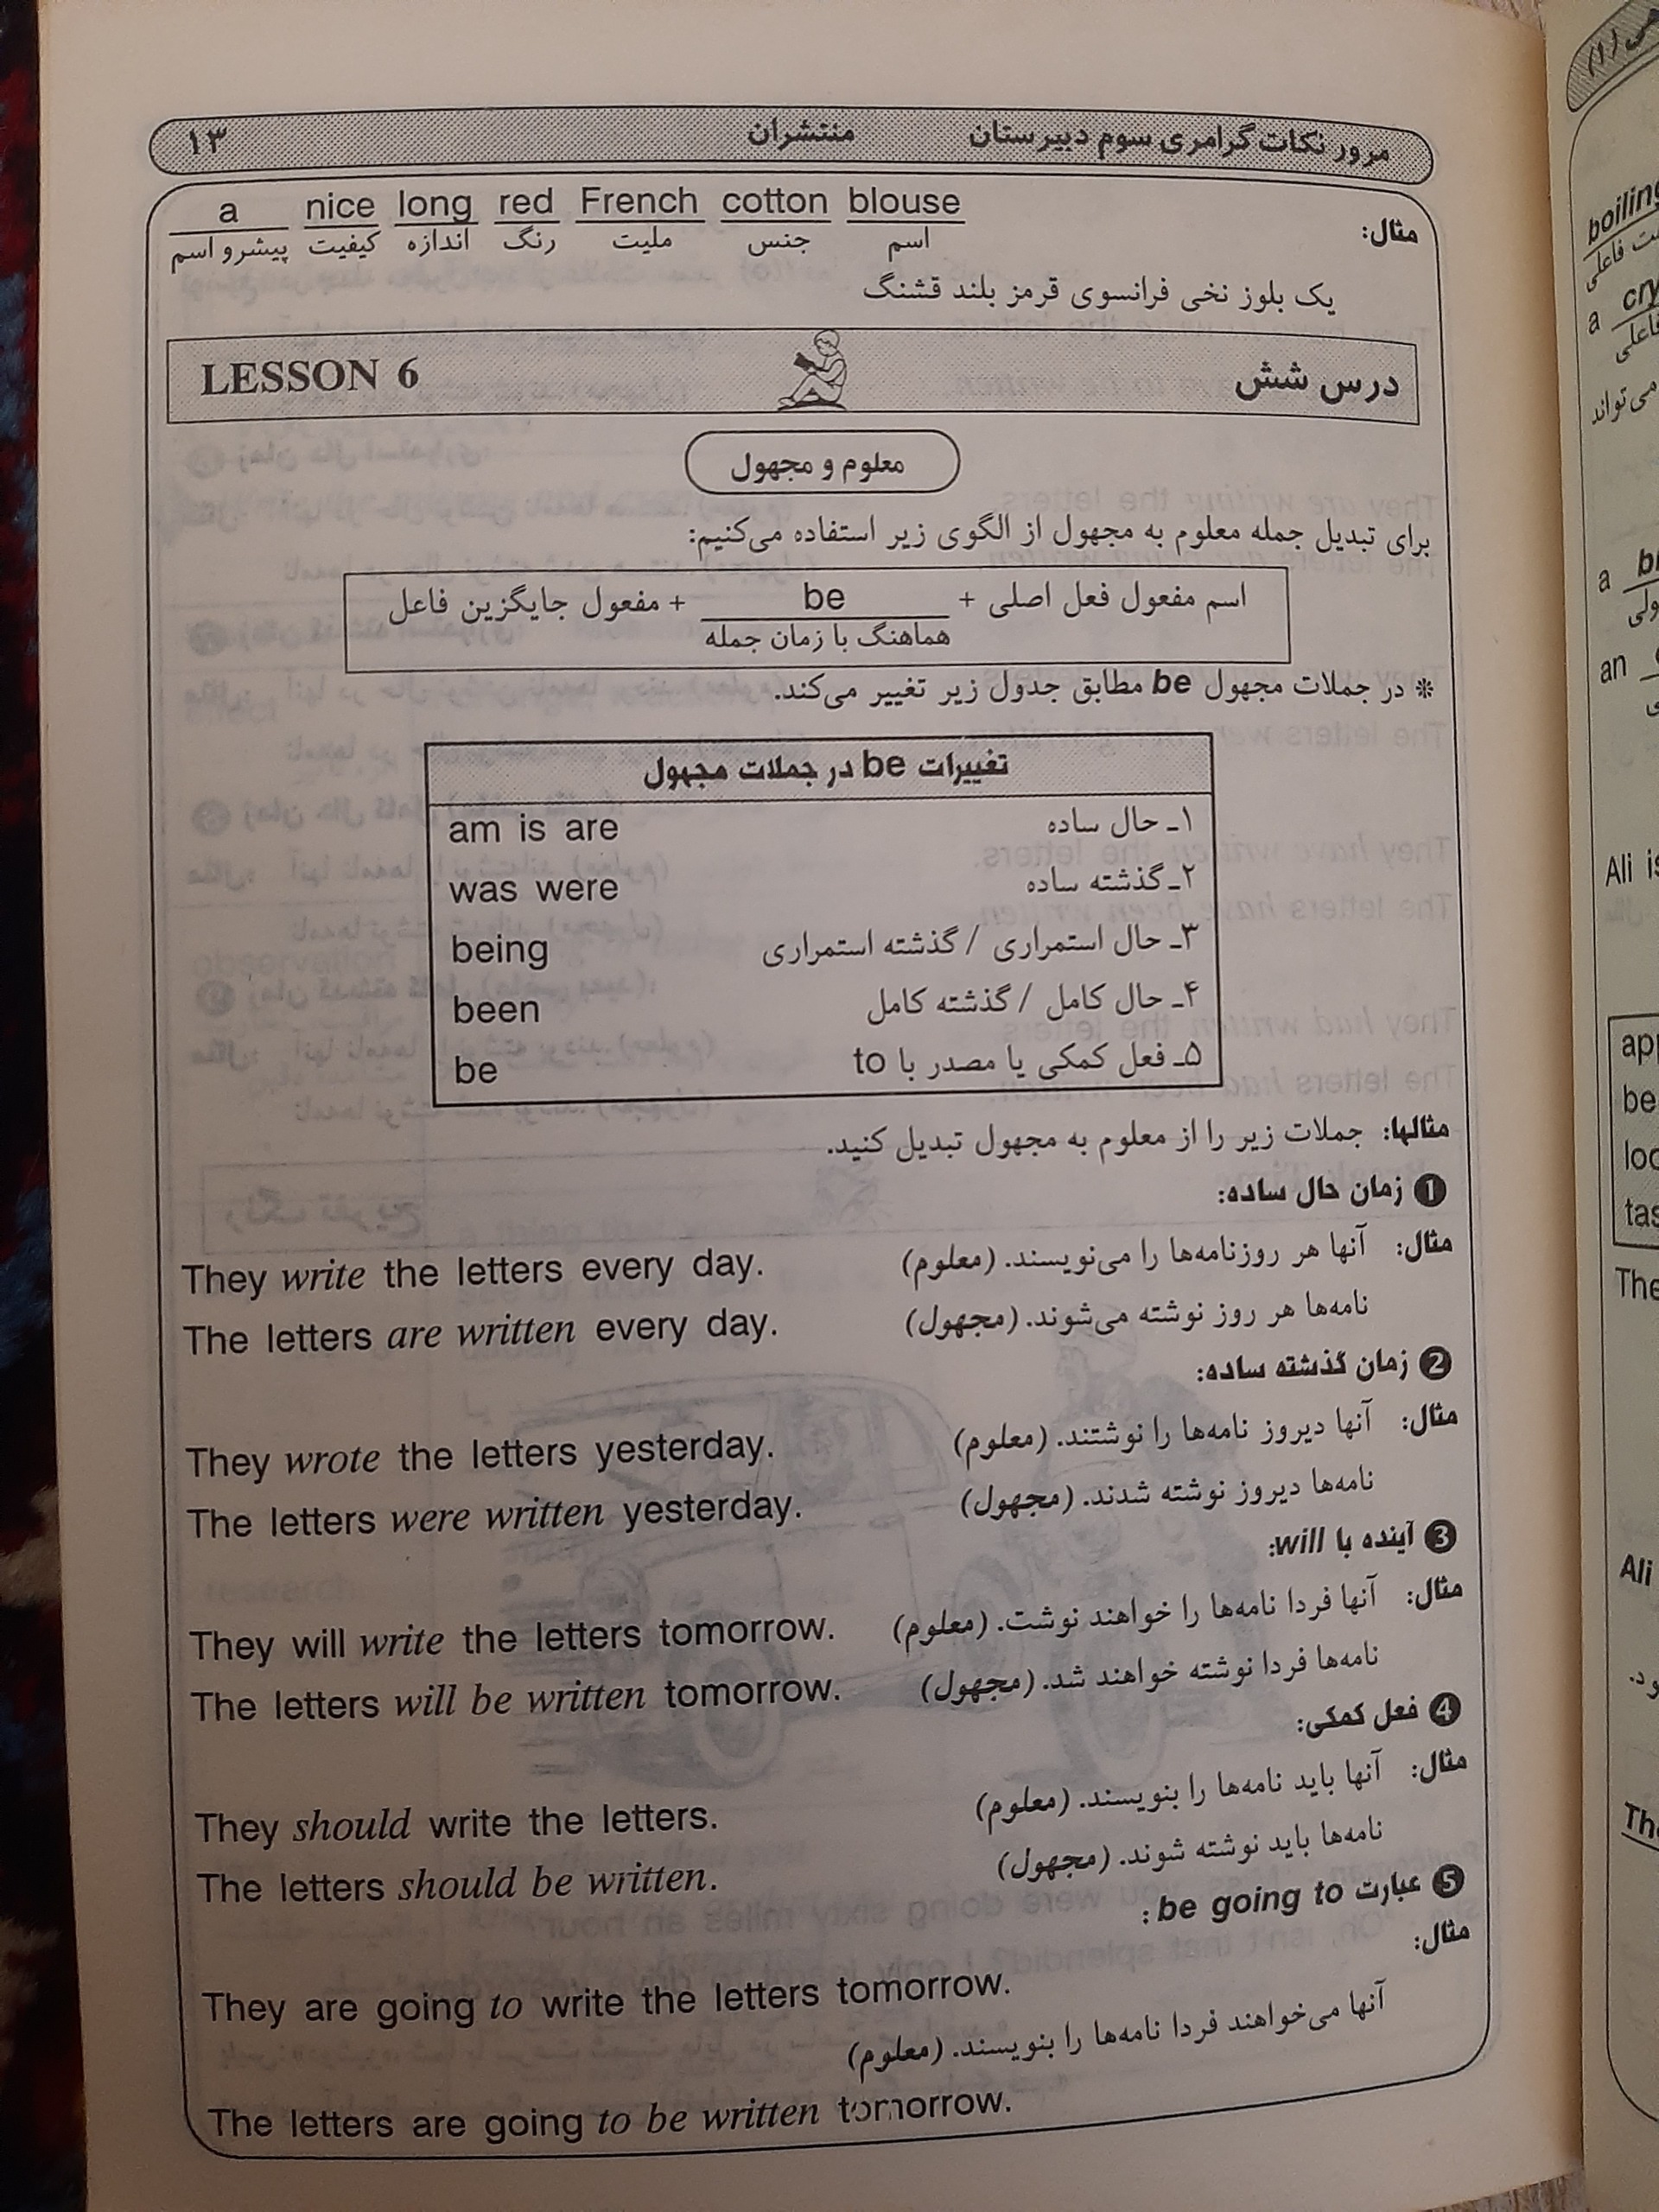 مرور نکات گرامری سوم دبیرستان منتشران ۱۳
مثال: a nice long red French cotton blouse
پیشرو اسم کیفیت اندازه رنگ ملیت جنس اسم
یک بلوز نخی فرانسوی قرمز بلند قشنگ
LESSON 6 درس شش
معلوم و مجهول
برای تبدیل جمله معلوم به مجهول از الگوی زیر استفاده می‌کنیم:
اسم مفعول فعل اصلی + be + مفعول جایگزین فاعل
هماهنگ با زمان جمله
* در جملات مجهول be مطابق جدول زیر تغییر می‌کند.
تغییرات be در جملات مجهول
۱ـ حال ساده am is are
۲ـ گذشته ساده was were
۳ـ حال استمراری / گذشته استمراری being
۴ـ حال کامل / گذشته کامل been
۵ـ فعل کمکی یا مصدر با to be
مثالها: جملات زیر را از معلوم به مجهول تبدیل کنید.
❶ زمان حال ساده:
مثال: آنها هر روزنامه‌ها را می‌نویسند. (معلوم) They write the letters every day.
نامه‌ها هر روز نوشته می‌شوند. (مجهول) The letters are written every day.
❷ زمان گذشته ساده:
مثال: آنها دیروز نامه‌ها را نوشتند. (معلوم) They wrote the letters yesterday.
نامه‌ها دیروز نوشته شدند. (مجهول) The letters were written yesterday.
❸ آینده با will:
مثال: آنها فردا نامه‌ها را خواهند نوشت. (معلوم) They will write the letters tomorrow.
نامه‌ها فردا نوشته خواهند شد. (مجهول) The letters will be written tomorrow.
❹ فعل کمکی:
مثال: آنها باید نامه‌ها را بنویسند. (معلوم) They should write the letters.
نامه‌ها باید نوشته شوند. (مجهول) The letters should be written.
❺ عبارت be going to :
مثال:
They are going to write the letters tomorrow.
آنها می‌خواهند فردا نامه‌ها را بنویسند. (معلوم)
The letters are going to be written tomorrow.